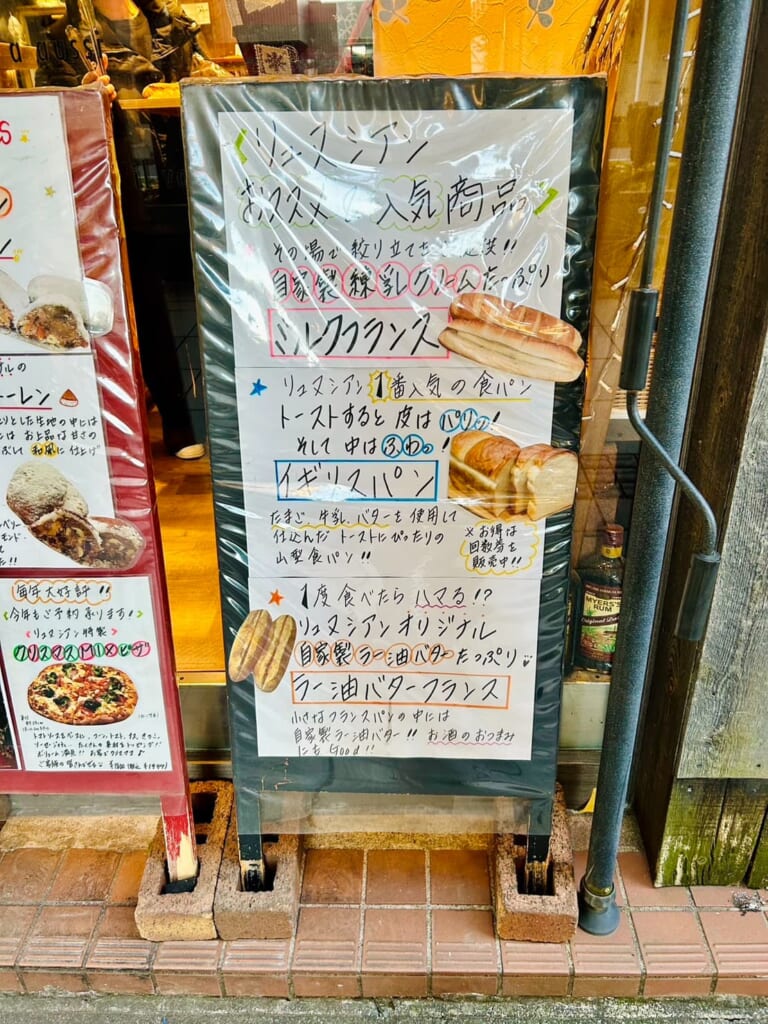 リュヌシアン
おススメ&人気商品
その場で絞り立てを
自家製練乳クリームたっぷり
ミルクフランス
リュヌシアン1番人気の食パン
トーストすると皮はパリッ!
そして中はふわっ!
イギリスパン
たまご、牛乳、バターを使用して
仕込んだトーストにぴったりの
山型食パン!!
※お得な
回数券を
販売中!!
1度食べたらハマる!?
リュヌシアンオリジナル
自家製ラー油バターたっぷり
ラー油バターフランス
小さなフランスパンの中には
自家製ラー油バター!! お酒のおつまみ
にもGood!!
ーレン
とした生地の中には
お上品な甘さの
和風に仕上げ
毎年大好評!!
今年もご予約承ります!
リュヌシアン特製
クリスマスMIXピザ
MYERS'S
RUM
Original Dark